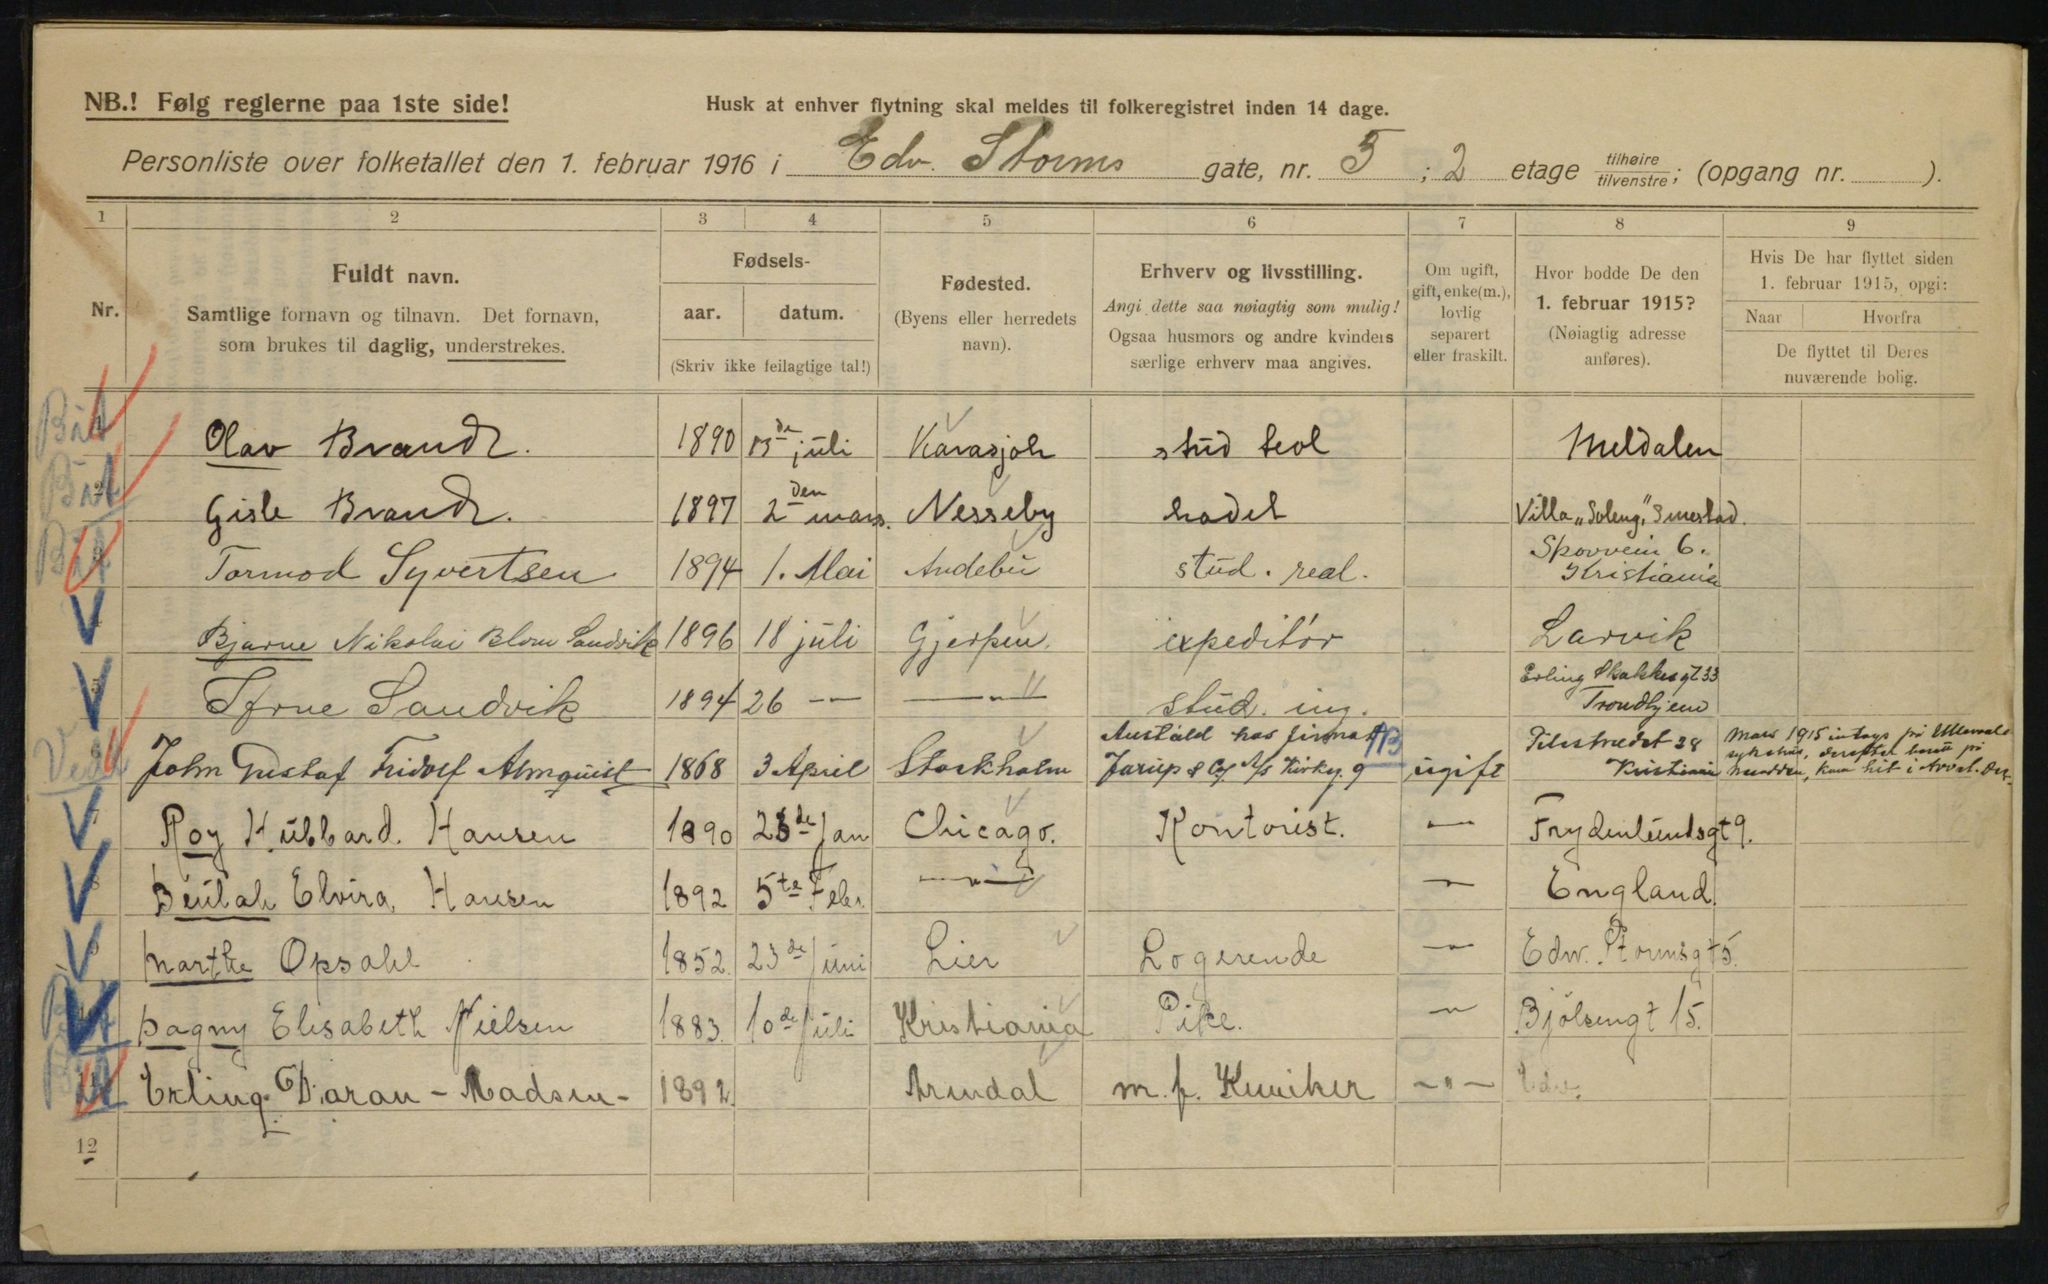 NB.! Følg reglerne paa 1ste side!
Husk at enhver flytning skal meldes til folkeregistret inden 14 dage.
Personliste over folketallet den 1. februar 1916 i Edv. Storms gate, nr. 5 ; 2 etage tilhøire/tilvenstre; (opgang nr. ).
1 2 3 4 5 6 7 8 9
Nr.
Fuldt navn.
Samtlige fornavn og tilnavn. Det fornavn,
som brukes til daglig, understrekes.
Fødsels-
aar. datum.
(Skriv ikke feilagtige tal!)
Fødested.
(Byens eller herredets
navn).
Erhverv og livsstilling.
Angi dette saa nøiagtig som mulig!
Ogsaa husmors og andre kvinders
særlige erhverv maa angives.
Om ugift,
gift, enke(m.),
lovlig
separert
eller fraskilt.
Hvor bodde De den
1. februar 1915?
(Nøiagtig adresse
anføres).
Hvis De har flyttet siden
1. februar 1915, opgi:
Naar Hvorfra
De flyttet til Deres
nuværende bolig.
Olav Brandt. 1890 13de juli Karasjok stud teol Meldalen
Gisle Brandt. 1897 2den mars. Nesseby kadet Villa „Soleng," Smestad.
Tormod Syvertsen 1894 1. Mai Andebu stud. real. Skovvein 6. Kristiania
Bjarne Nikolai Blom Sandvik 1896 18 juli Gjerpen. expeditør Larvik
Sandvik 1894 26 — — " — stud. ing. Erling Skakkesgt 33 Trondhjem
John Gustaf Fridolf Almquist 1868 3 April Stockholm Ansatt hos firmaet Jarup & Co A/S Kirkg. 9 ugift Pilestrædet 38 Kristiania Mars 1915 på Ullevaal
Roy Hubbard. Hansen 1890 23de Jan Chicago. Kontorist. — Frydenlundsgt 9.
Beulah Elvira Hansen 1892 5te Febr. — " — — England.
Marthe Opsahl 1852. 23de Juni Lier Logerende — Edw. Stormsgt 5.
Dagny Elisabeth Nielsen 1883. 10de Juli Kristiania Pike. — Bjølsengt 15.
11 Erling Daran - Madsen - 1892. Arendal m. f. Kemiker — " — Edv.
12